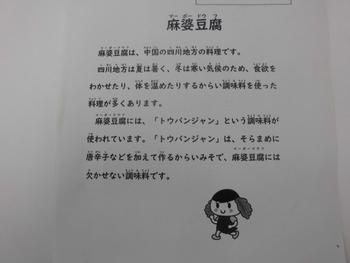 麻婆豆腐
麻婆豆腐は、中国の四川地方の料理です。
四川地方は夏は暑く、冬は寒い気候のため、食欲を
わかせたり、体を温めたりするからい調味料を使った
料理が多くあります。
麻婆豆腐には、「トウバンジャン」という調味料が
使われています。「トウバンジャン」は、そらまめに
唐辛子などを加えて作るからいみそで、麻婆豆腐には
欠かせない調味料です。